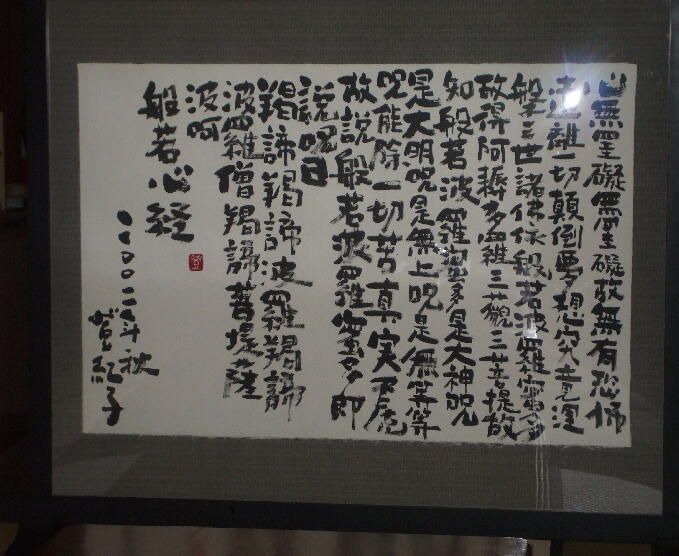 心無罣礙無罣礙故無有恐怖
遠離一切顛倒夢想究竟涅
槃三世諸佛依般若波羅蜜多
故得阿耨多羅三藐三菩提故
知般若波羅蜜多是大神呪
是大明呪是無上呪是無等等
呪能除一切苦真実不虚
故説般若波羅蜜多即
説呪曰
羯諦羯諦波羅羯諦
波羅僧羯諦菩提薩
波呵
般若心経
二〇〇二年秋
紅子